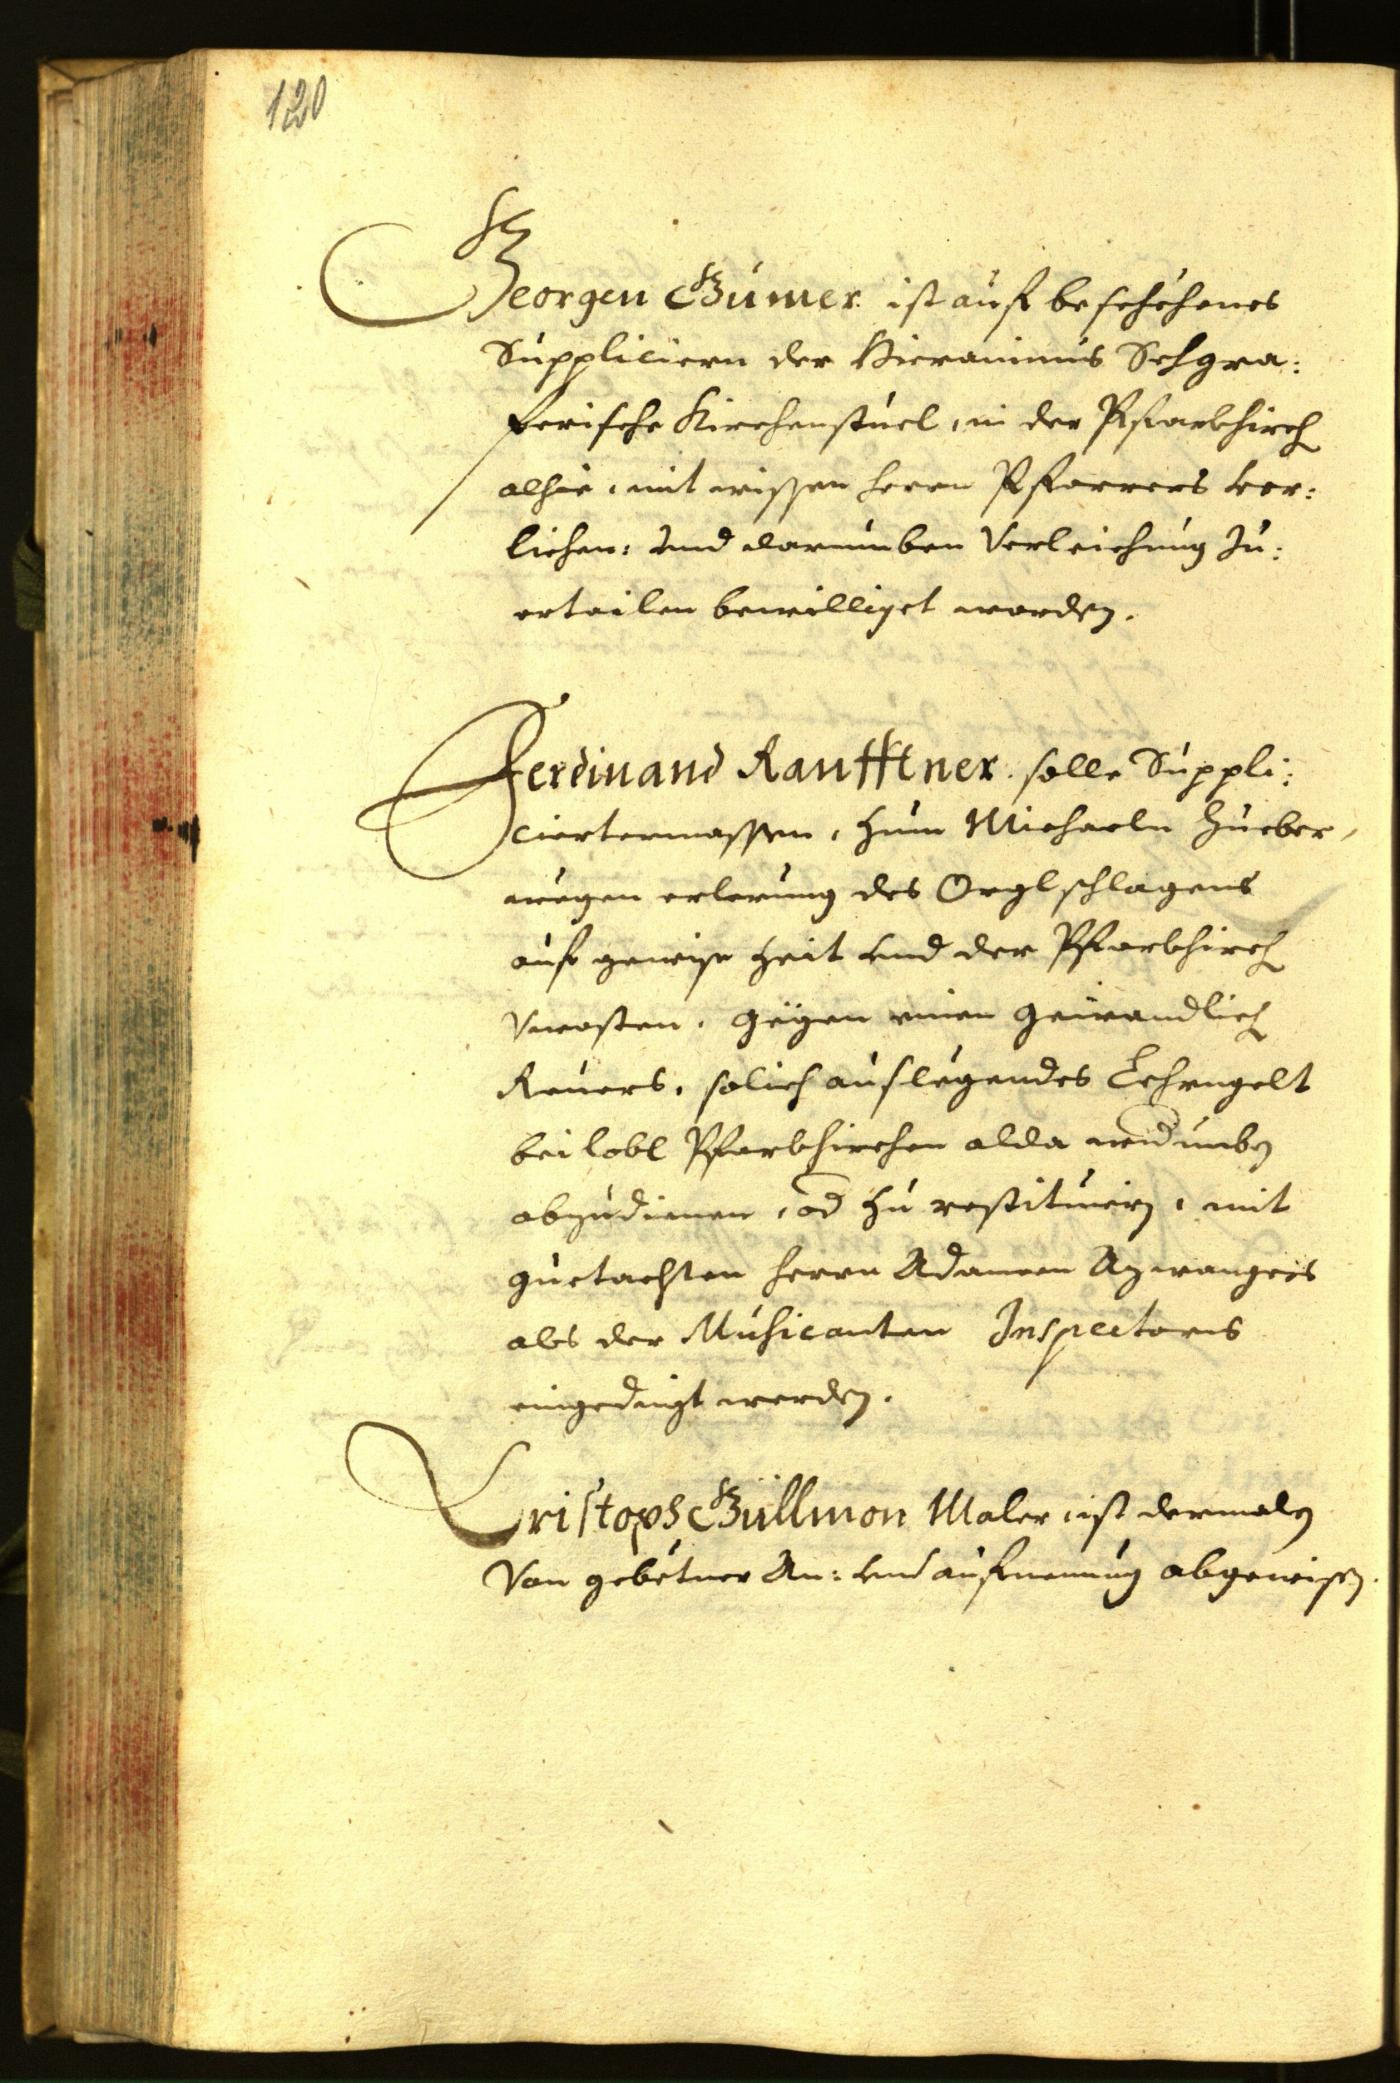 120
Georgen Gumer. ist auf beschehenes
Suppliciern der Hieronimus Schgra:
ferische Kirchenstuel, in der Pfarrkhirch
alhie, mit wissen herrn Pfarrers ver:
lichen: und darumben Verleichung zu:
ertailen bewilliget worden.
Ferdinand Raufftner. solle Suppli:
ciertermassen, zum Michaeln Hueber,
wegen erlernung des Orglschlagens
auf gewise Zeit und der Pfarrkhirch
Uncosten, gegen einen gewandlich
Revers, solich auslegendes Lehrngelt
bei lobl Pfarrkhirchen alda widumben
abzudienen, od zu restituiern, mit
guetachten herrn Adamen Azwangers
als der Musicanten Inspectorns
eingedingt werden.
Cristoph Gullmon Maler, ist dermalen
Von gebetner An: und aufnemung abgewisen.